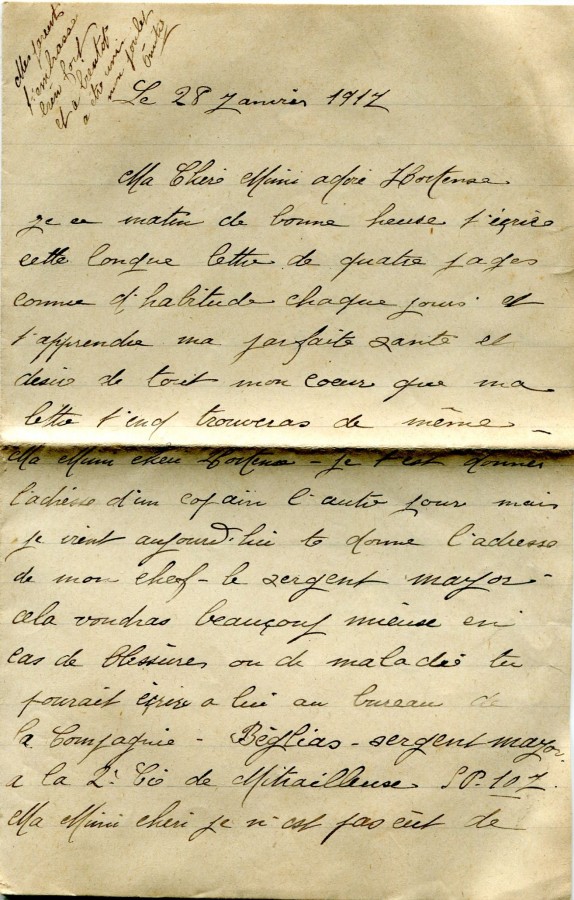 Le 28 Janvier 1917
Ma Cheri Mimi adoré Hortense
je ce matin de bonne heuse t'écrire
cette longue lettre de quatre pages
comme d'habitude chaque jours et
t'apprendre ma parfaite santé et
desire de tout mon coeur que ma
lettre t'end trouveras de même -
Ma Mimi cheri Hortense - je t'est donner
l'adresse d'un copain l'autre jour mais
je vient aujourd'hui te donne l'adresse
de mon chef - le sergent mayor -
cela voudras beaucoup mieuse en
cas de blessures ou de maladie tu
pourait écrire a lui au bureau de
la Compagnie - Béglias - sergent mayor
a la 2e Cie de Mitrailleuse SP. 107.
Ma Mimi cheri je n'est pas eut de
t'embrasse
bien fort
et a bientot
a etre uni